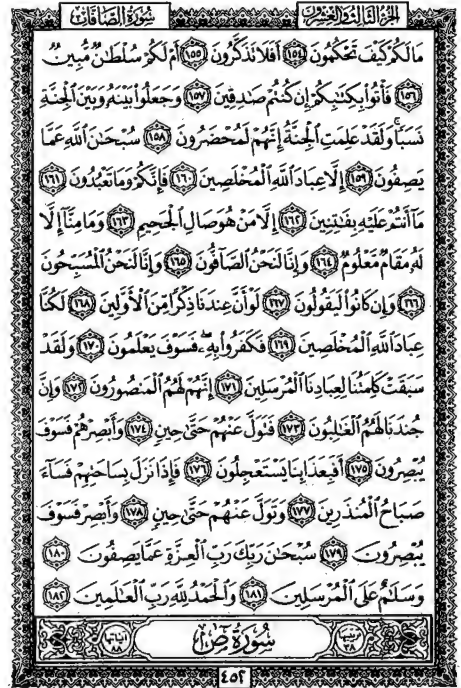 سُورَةُ الصَّافَّاتِ الجُزْءُ الثَّالِثُ وَالعِشْرُونَ
مَا لَكُمْ كَيْفَ تَحْكُمُونَ ١٥٤ أَفَلَا تَذَكَّرُونَ ١٥٥ أَمْ لَكُمْ سُلْطَٰنٌ مُّبِينٌ
١٥٦ فَأْتُوا۟ بِكِتَٰبِكُمْ إِن كُنتُمْ صَٰدِقِينَ ١٥٧ وَجَعَلُوا۟ بَيْنَهُۥ وَبَيْنَ ٱلْجِنَّةِ
نَسَبًا ۚ وَلَقَدْ عَلِمَتِ ٱلْجِنَّةُ إِنَّهُمْ لَمُحْضَرُونَ ١٥٨ سُبْحَٰنَ ٱللَّهِ عَمَّا
يَصِفُونَ ١٥٩ إِلَّا عِبَادَ ٱللَّهِ ٱلْمُخْلَصِينَ ١٦٠ فَإِنَّكُمْ وَمَا تَعْبُدُونَ ١٦١
مَآ أَنتُمْ عَلَيْهِ بِفَٰتِنِينَ ١٦٢ إِلَّا مَنْ هُوَ صَالِ ٱلْجَحِيمِ ١٦٣ وَمَا مِنَّآ إِلَّا
لَهُۥ مَقَامٌ مَّعْلُومٌ ١٦٤ وَإِنَّا لَنَحْنُ ٱلصَّآفُّونَ ١٦٥ وَإِنَّا لَنَحْنُ ٱلْمُسَبِّحُونَ
١٦٦ وَإِن كَانُوا۟ لَيَقُولُونَ ١٦٧ لَوْ أَنَّ عِندَنَا ذِكْرًا مِّنَ ٱلْأَوَّلِينَ ١٦٨ لَكُنَّا
عِبَادَ ٱللَّهِ ٱلْمُخْلَصِينَ ١٦٩ فَكَفَرُوا۟ بِهِۦ ۖ فَسَوْفَ يَعْلَمُونَ ١٧٠ وَلَقَدْ
سَبَقَتْ كَلِمَتُنَا لِعِبَادِنَا ٱلْمُرْسَلِينَ ١٧١ إِنَّهُمْ لَهُمُ ٱلْمَنصُورُونَ ١٧٢ وَإِنَّ
جُندَنَا لَهُمُ ٱلْغَٰلِبُونَ ١٧٣ فَتَوَلَّ عَنْهُمْ حَتَّىٰ حِينٍ ١٧٤ وَأَبْصِرْهُمْ فَسَوْفَ
يُبْصِرُونَ ١٧٥ أَفَبِعَذَابِنَا يَسْتَعْجِلُونَ ١٧٦ فَإِذَا نَزَلَ بِسَاحَتِهِمْ فَسَآءَ
صَبَاحُ ٱلْمُنذَرِينَ ١٧٧ وَتَوَلَّ عَنْهُمْ حَتَّىٰ حِينٍ ١٧٨ وَأَبْصِرْ فَسَوْفَ
يُبْصِرُونَ ١٧٩ سُبْحَٰنَ رَبِّكَ رَبِّ ٱلْعِزَّةِ عَمَّا يَصِفُونَ ١٨٠
وَسَلَٰمٌ عَلَى ٱلْمُرْسَلِينَ ١٨١ وَٱلْحَمْدُ لِلَّهِ رَبِّ ٱلْعَٰلَمِينَ ١٨٢
ترتيبها ٣٨ سُورَةُ صٓ آياتها ٨٨
٤٥٢